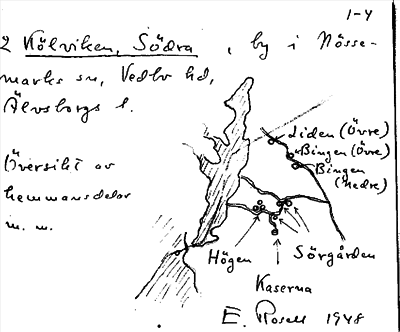 1-4
2 Kölviken, Södra, by i Nösse-
marks sn, Vedbo hd,
Älvsborgs l.
Översikt av
hemmansdelar
m. m.
Liden (Övre)
Bingen (Övre)
Bingen
(Nedre)
Högen
Sörgården
Kaserna
E. Rosell 1948